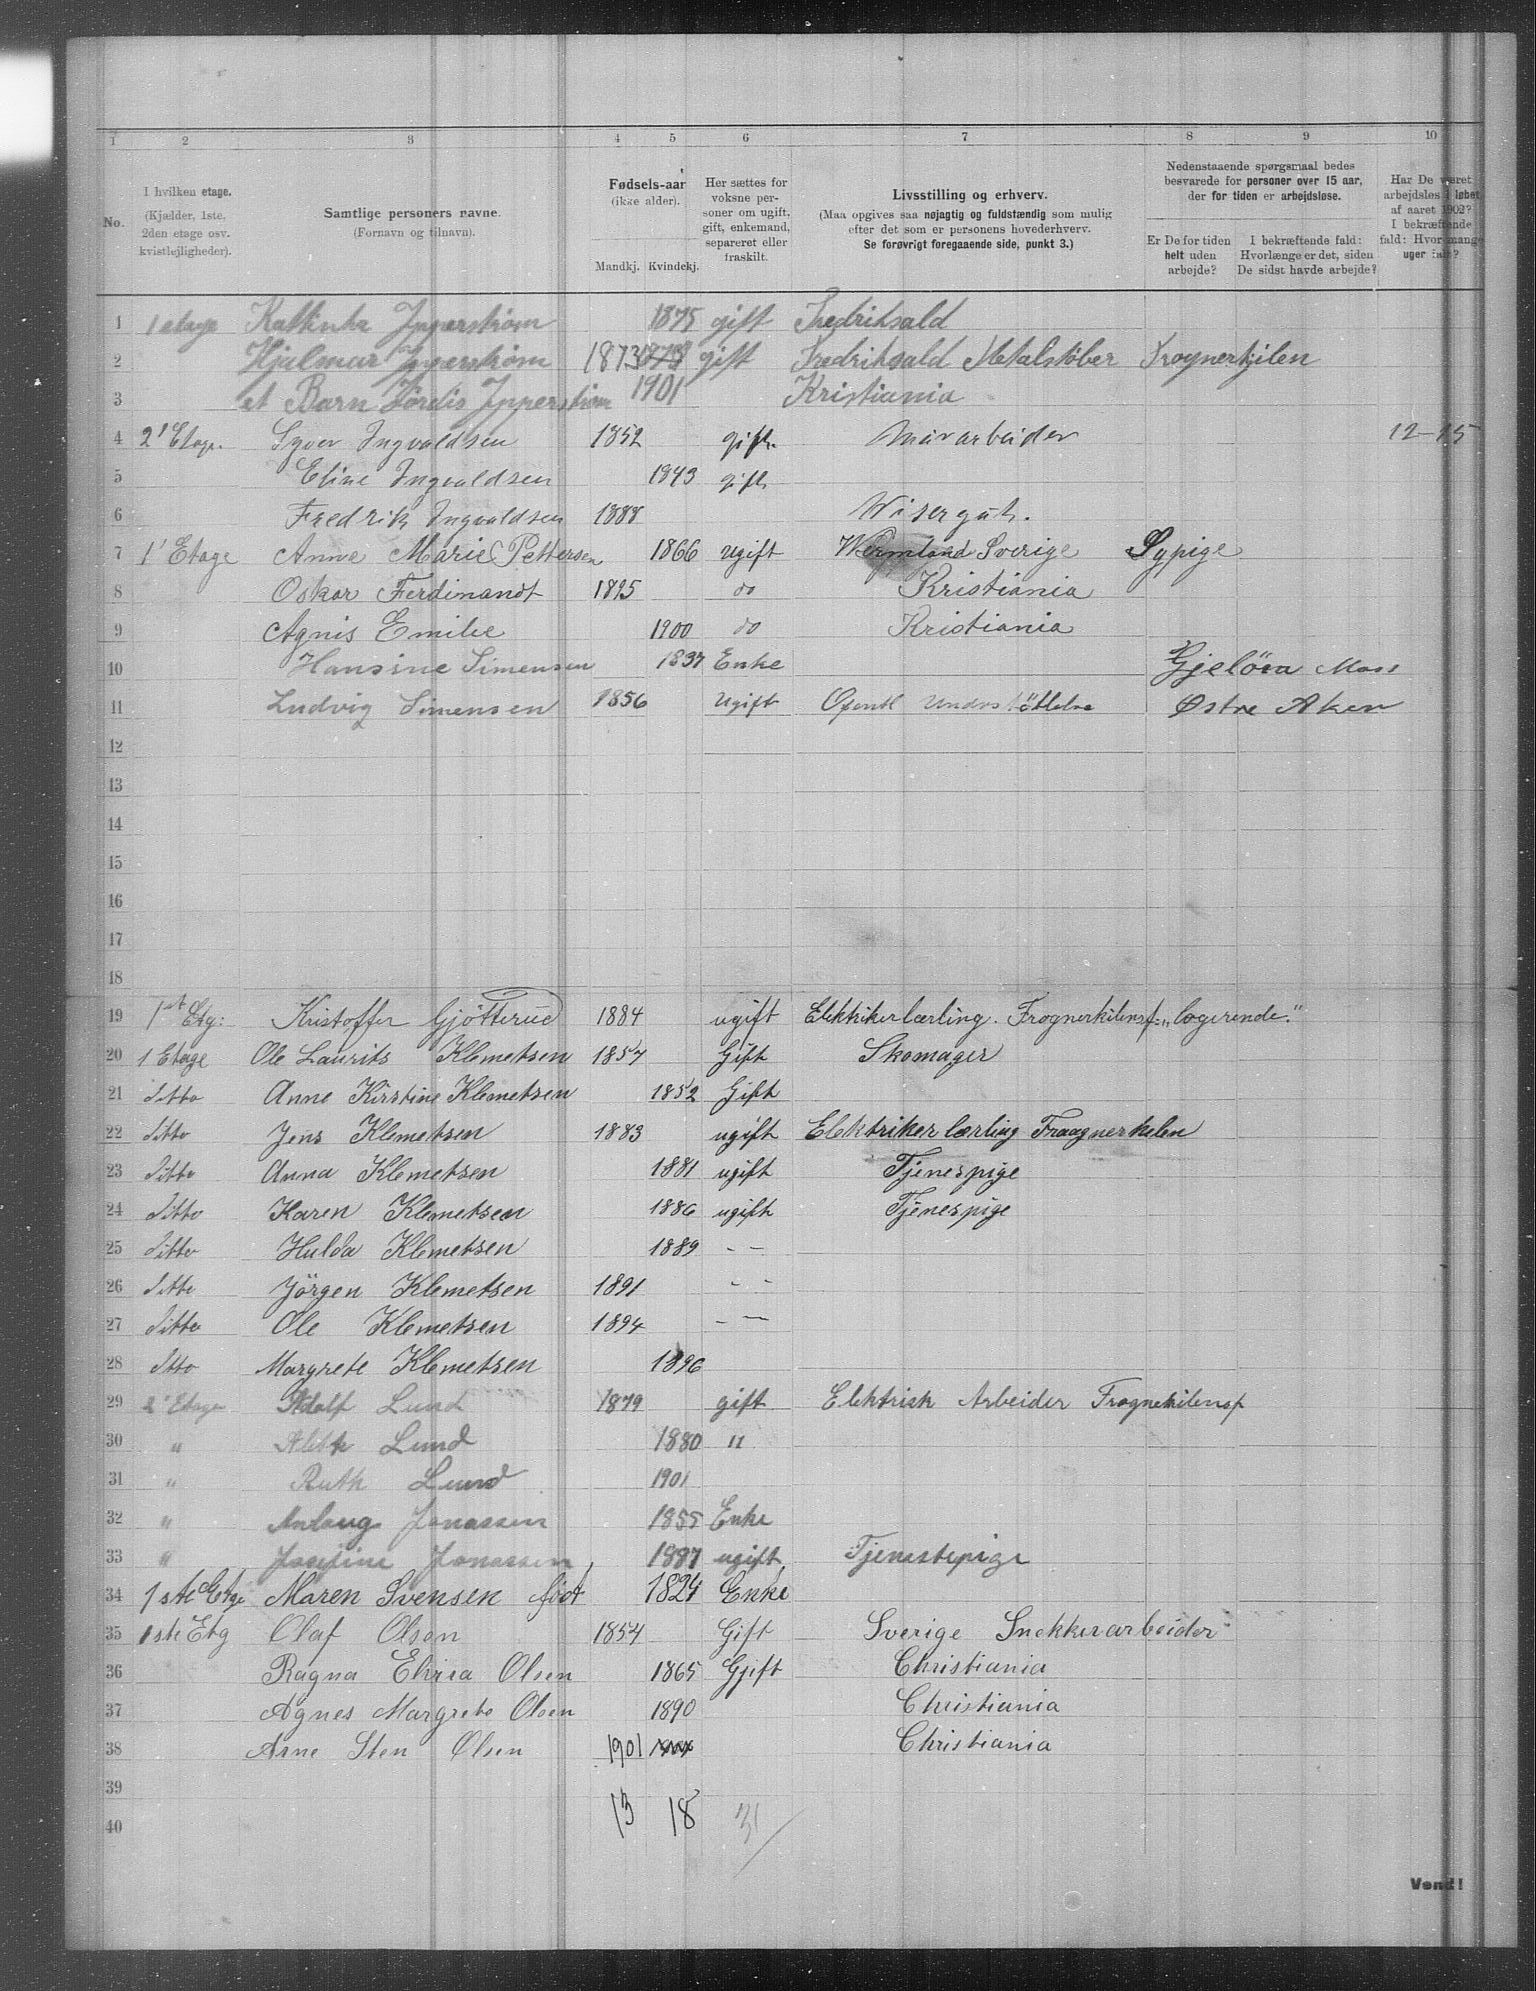 1 2 3 4 5 6 7 8 9 10
No. I hvilken etage. (Kjælder, 1ste, 2den etage osv. kvistlejligheder). Samtlige personers navne. (Fornavn og tilnavn). Fødsels-aar (ikke alder). Mandkj. Kvindekj. Her sættes for voksne personer om ugift, gift, enkemand, separeret eller fraskilt. Livsstilling og erhverv. (Maa opgives saa nøjagtig og fuldstændig som mulig efter det som er personens hovederhverv. Se forøvrigt foregaaende side, punkt 3.) Nedenstaaende spørgsmaal bedes besvarede for personer over 15 aar, der for tiden er arbejdsløse. Er De for tiden helt uden arbejde? I bekræftende fald: Hvorlænge er det, siden De sidst havde arbejde? Har De været arbejdsløs i løbet af aaret 1902? I bekræftende fald: Hvor mange uger ialt?
1 1 etage Kathinka Ipperstrøm 1875 gift Fredrikhald
2 Hjalmar Ipperstrøm 1873 gift Fredrikhald Metalstøber Frognerkilen
3 et Barn Jørdis Ipperstrøm 1901 Kristiania
4 2' Etage. Syver Ingvaldsen 1852 gift. Murarbeider 12-15
5 Eline Ingvaldsen 1843 gift
6 Fredrik Ingvaldsen 1888 Wisergut.
7 1' Etage Anne Marie Pettersen 1866 ugift Wermland Sverige Sypige
8 Oskar Ferdinandt 1895 do Kristiania
9 Agnis Emilie 1900 do Kristiania
10 Hansine Simensen 1837 Enke Gjelöia Moss
11 Ludvig Simensen 1856 Ugift Ofentl Understöttelse Østre Aker
12
13
14
15
16
17
18
19 1st Etg: Kristoffer Gjötterud 1884 ugift Elektrikerlærling. Frognerkilensf: „logerende."
20 1 Etage Ole Laurits Klemetsen 1857 Gift Skomager
21 Ditto Anne Kirstine Klemetsen 1852 Gift
22 Ditto Jens Klemetsen 1883 ugift Elektriker lærling Fraagnerkilen
23 Ditto Anna Klemetsen 1881 ugift Tjenespige
24 Ditto Karen Klemetsen 1886 ugift Tjenespige
25 Ditto Hulda Klemetsen 1889 - -
26 Ditto Jörgen Klemetsen 1891 - -
27 Ditto Ole Klemetsen 1894 - -
28 Ditto Margrete Klemetsen 1896
29 2' Etage Adolf Lund 1879 gift Elektrisk Arbeider Frognekilensf
30 " Lund 1880 "
31 " Ruth Lund 1901
32 " Anlaug Jonassen 1855 Enke
33 " Josefine Jonassen 1887 ugift Tjenestepige
34 1ste Etge Maren Svensen født 1824 Enke
35 1ste Etg Olaf Olsen 1854 Gift Sverige Snekkerarbeider
36 Ragna Elvira Olsen 1865 Gjift Christiania
37 Agnes Margrete Olsen 1890 Christiania
38 Arne Sten Olsen 1901 Christiania
39
40 13 18 31
Vend!